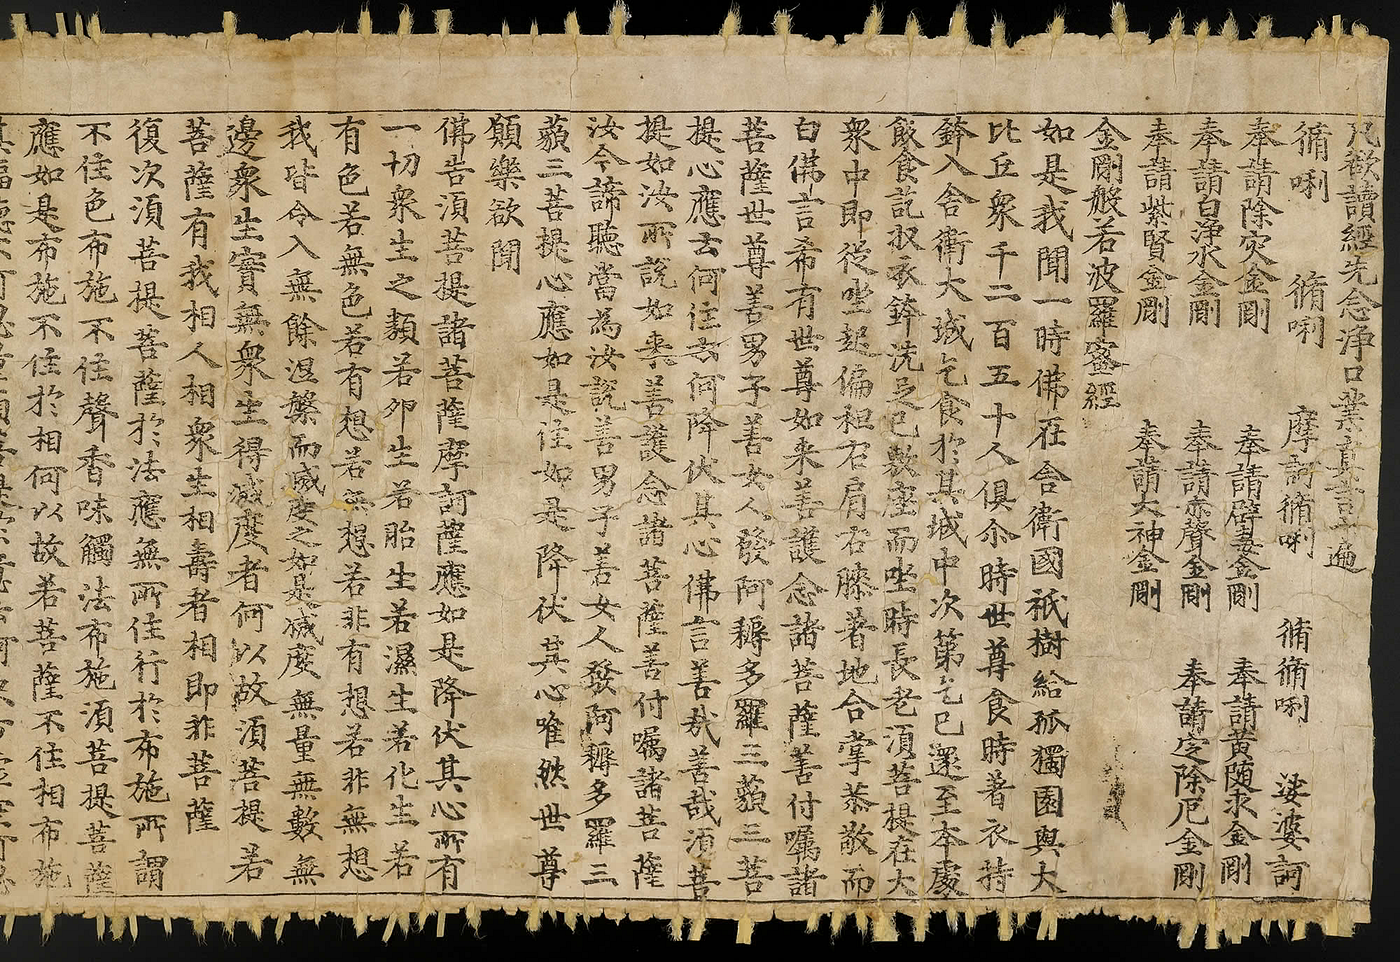 凡欲讀經先念淨口業真言一遍
脩唎 脩唎 摩訶脩唎 脩脩唎 娑婆訶
奉請除灾金剛 奉請辟毒金剛 奉請黃随求金剛
奉請白淨水金剛 奉請赤聲金剛 奉請定除厄金剛
奉請紫賢金剛 奉請大神金剛
金剛般若波羅蜜經
如是我聞一時佛在舍衛國祇樹給孤獨園與大
比丘衆千二百五十人俱尒時世尊食時著衣持
鉢入舍衛大城乞食於其城中次第乞已還至本處
飯食訖収衣鉢洗足已敷座而坐時長老湏菩提在大
衆中即從坐起偏袒右肩右膝著地合掌恭敬而
白佛言希有世尊如来善護念諸菩薩善付嘱諸
菩薩世尊善男子善女人發阿耨多羅三藐三菩
提心應云何住云何降伏其心佛言善哉善哉湏菩
提如汝所說如来善護念諸菩薩善付嘱諸菩薩
汝今諦聽當為汝說善男子善女人發阿耨多羅三
藐三菩提心應如是住如是降伏其心唯然世尊
願樂欲聞
佛告湏菩提諸菩薩摩訶薩應如是降伏其心所有
一切衆生之類若卵生若胎生若濕生若化生若
有色若無色若有想若無想若非有想若非無想
我皆令入無餘涅槃而滅度之如是滅度無量無數無
邊衆生實無衆生得滅度者何以故湏菩提若
菩薩有我相人相衆生相壽者相即非菩薩
復次湏菩提菩薩於法應無所住行於布施所謂
不住色布施不住聲香味觸法布施湏菩提菩薩
應如是布施不住於相何以故若菩薩不住相布施